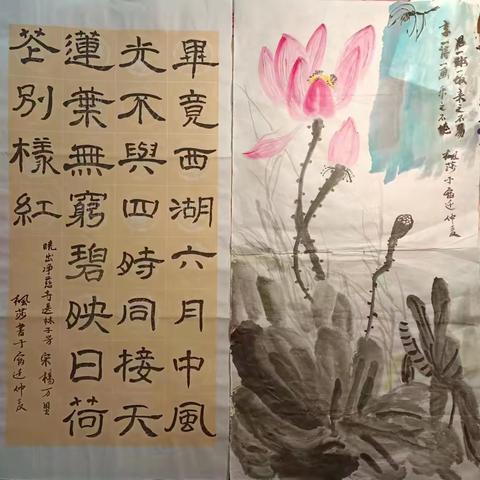 畢竟西湖六月中風
光不與四時同接天
蓮葉無窮碧映日荷
花別樣紅
晓出净慈寺送林子方 宋 楊万里
楓莎書于宿迁仲夏
来之不易
楓莎于宿迁仲夏